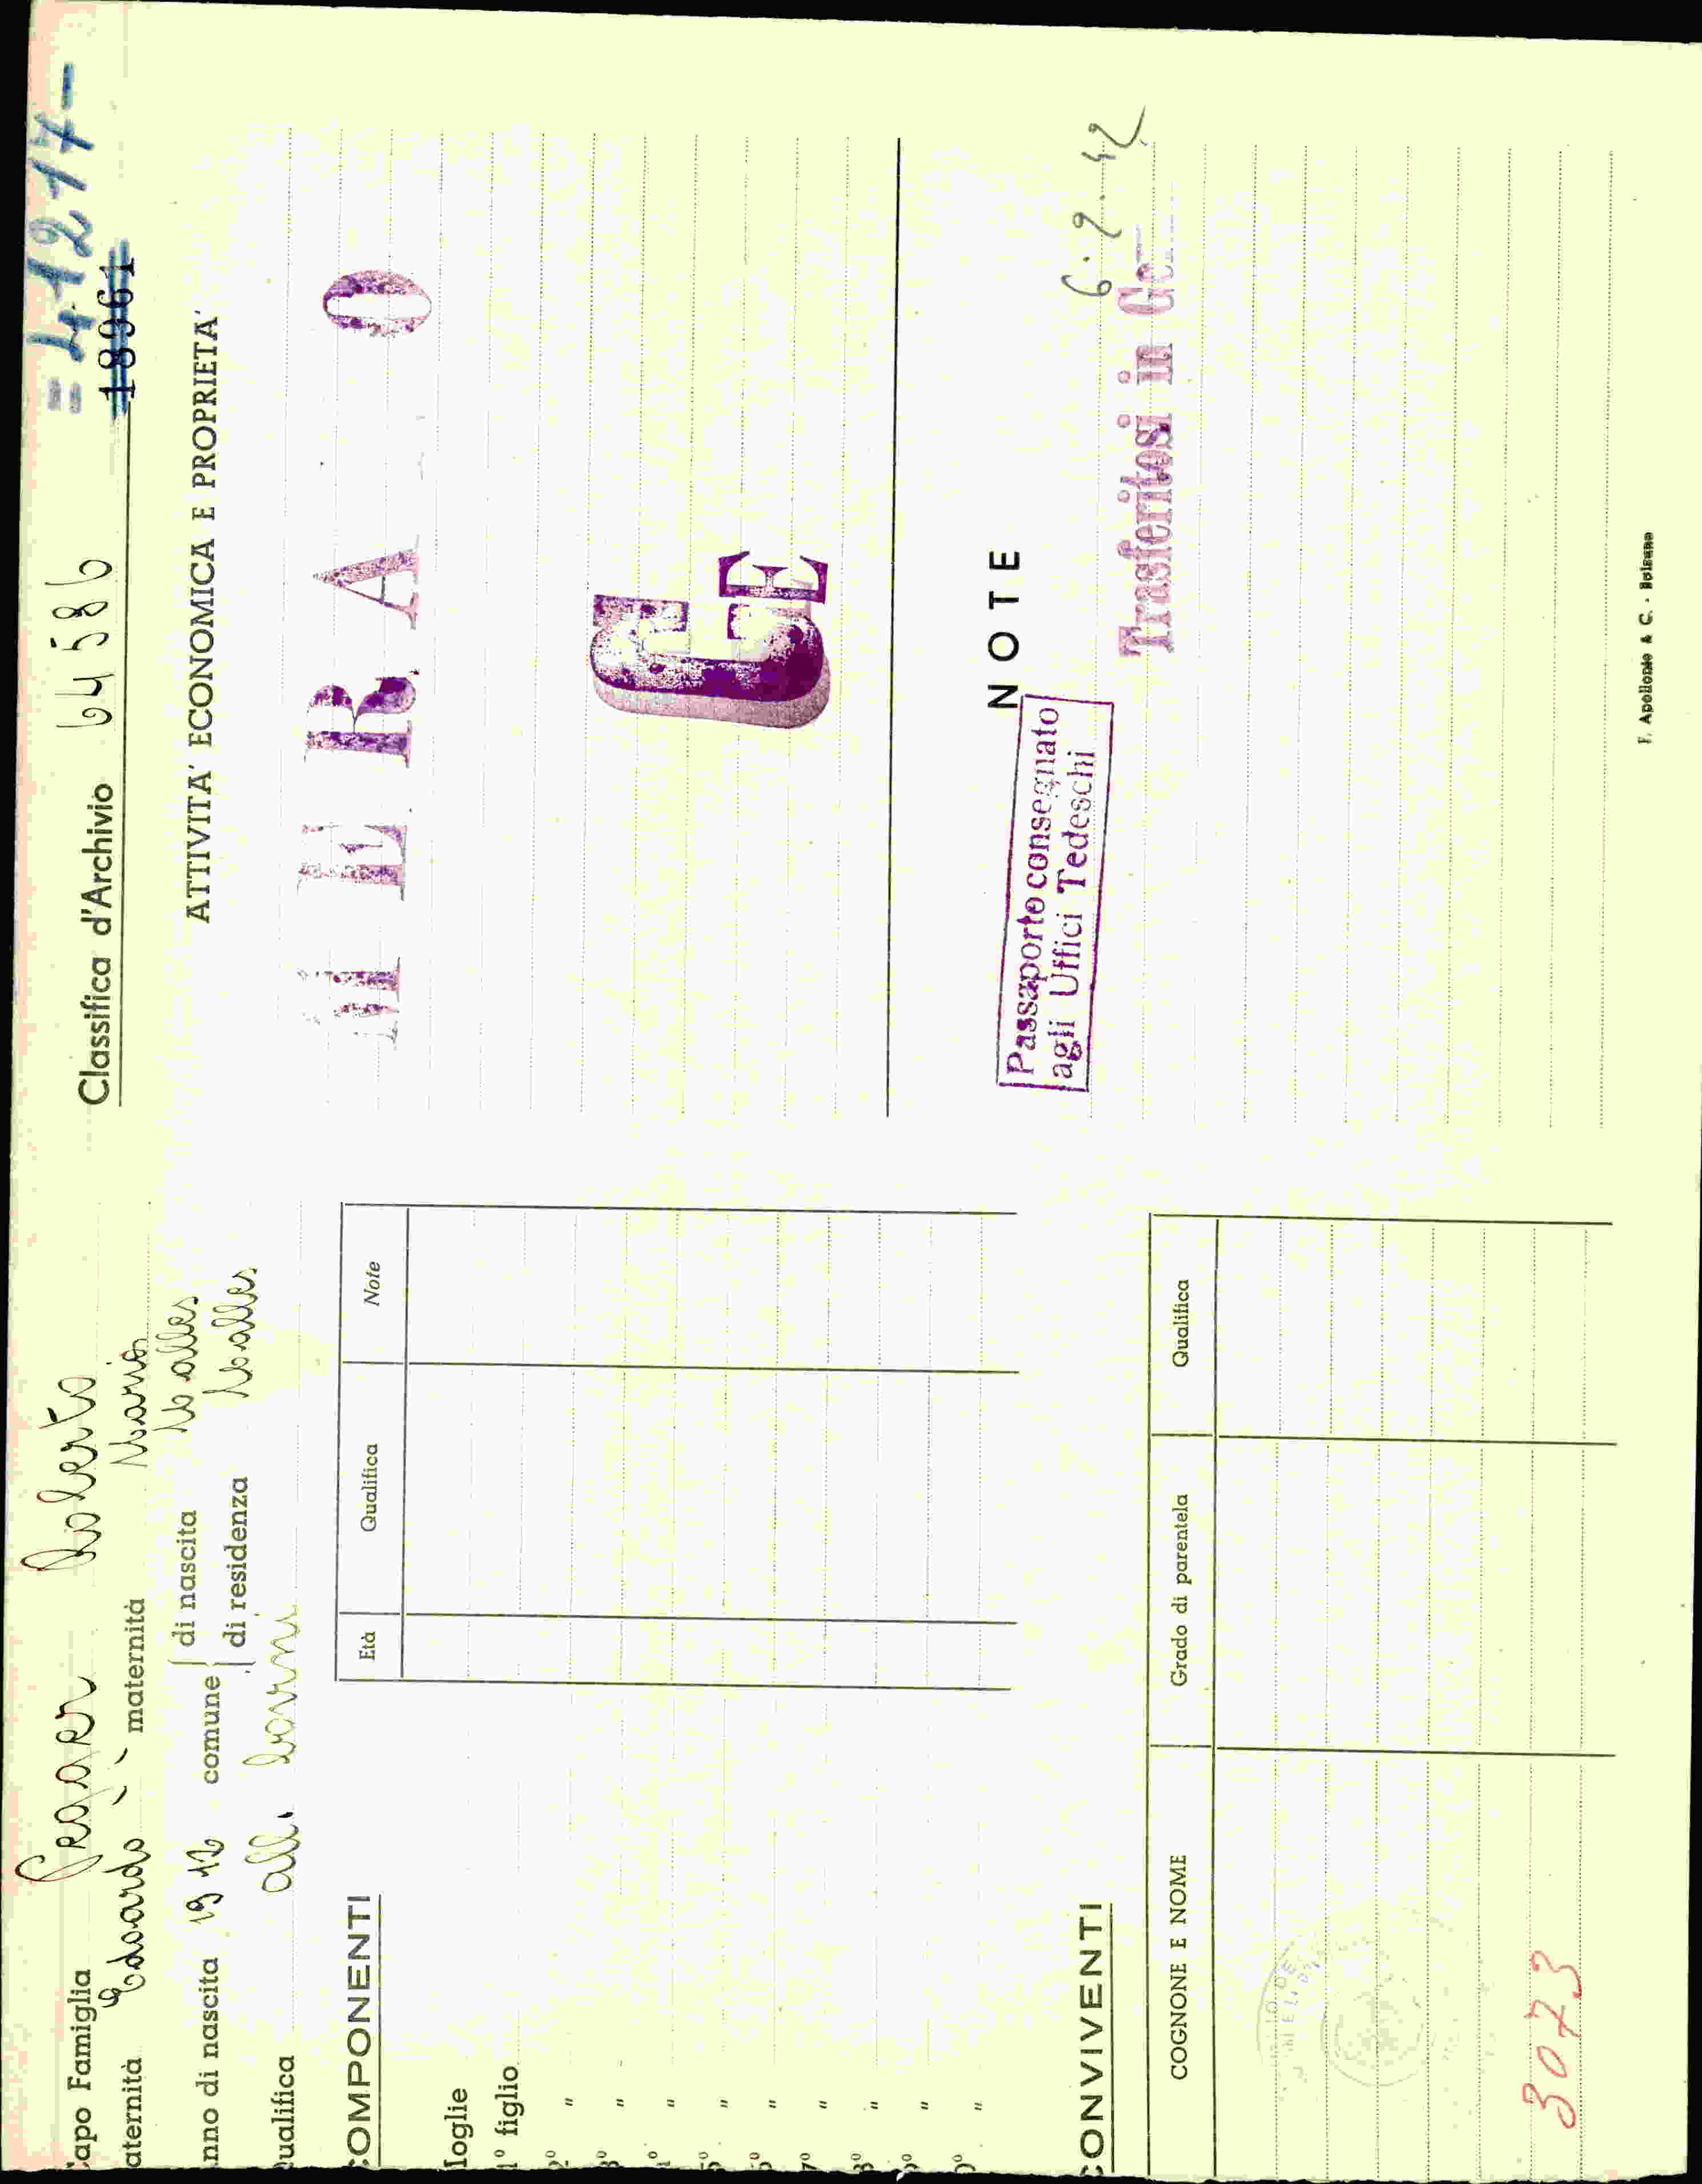 Capo Famiglia Prader Roberto
aternità Edoardo maternità Maria
nno di nascita 1912 comune di nascita
di residenza
ualifica all.
COMPONENTI
Età Qualifica Note
oglie
1° figlio
2° "
3° "
4° "
5° "
6° "
7° "
8° "
9° "
0° "
CONVIVENTI
COGNOME E NOME Grado di parentela Qualifica
3073
Classifica d'Archivio 64586
= 41217 -
18961
ATTIVITA' ECONOMICA E PROPRIETA'
MERA O
GE
NOTE
Passaporto consegnato
agli Uffici Tedeschi
6.9.42
Trasferitosi in Ger
F. Apollonio & C. - Bolzano